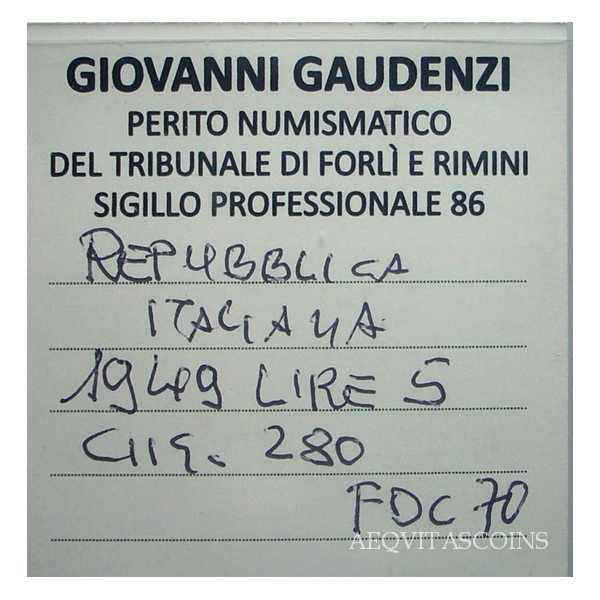 GIOVANNI GAUDENZI
PERITO NUMISMATICO
DEL TRIBUNALE DI FORLÌ E RIMINI
SIGILLO PROFESSIONALE 86
REPUBBLICA
ITALIANA
1949 LIRE 5
GIG. 280
FDC 70
AEQVITASCOINS